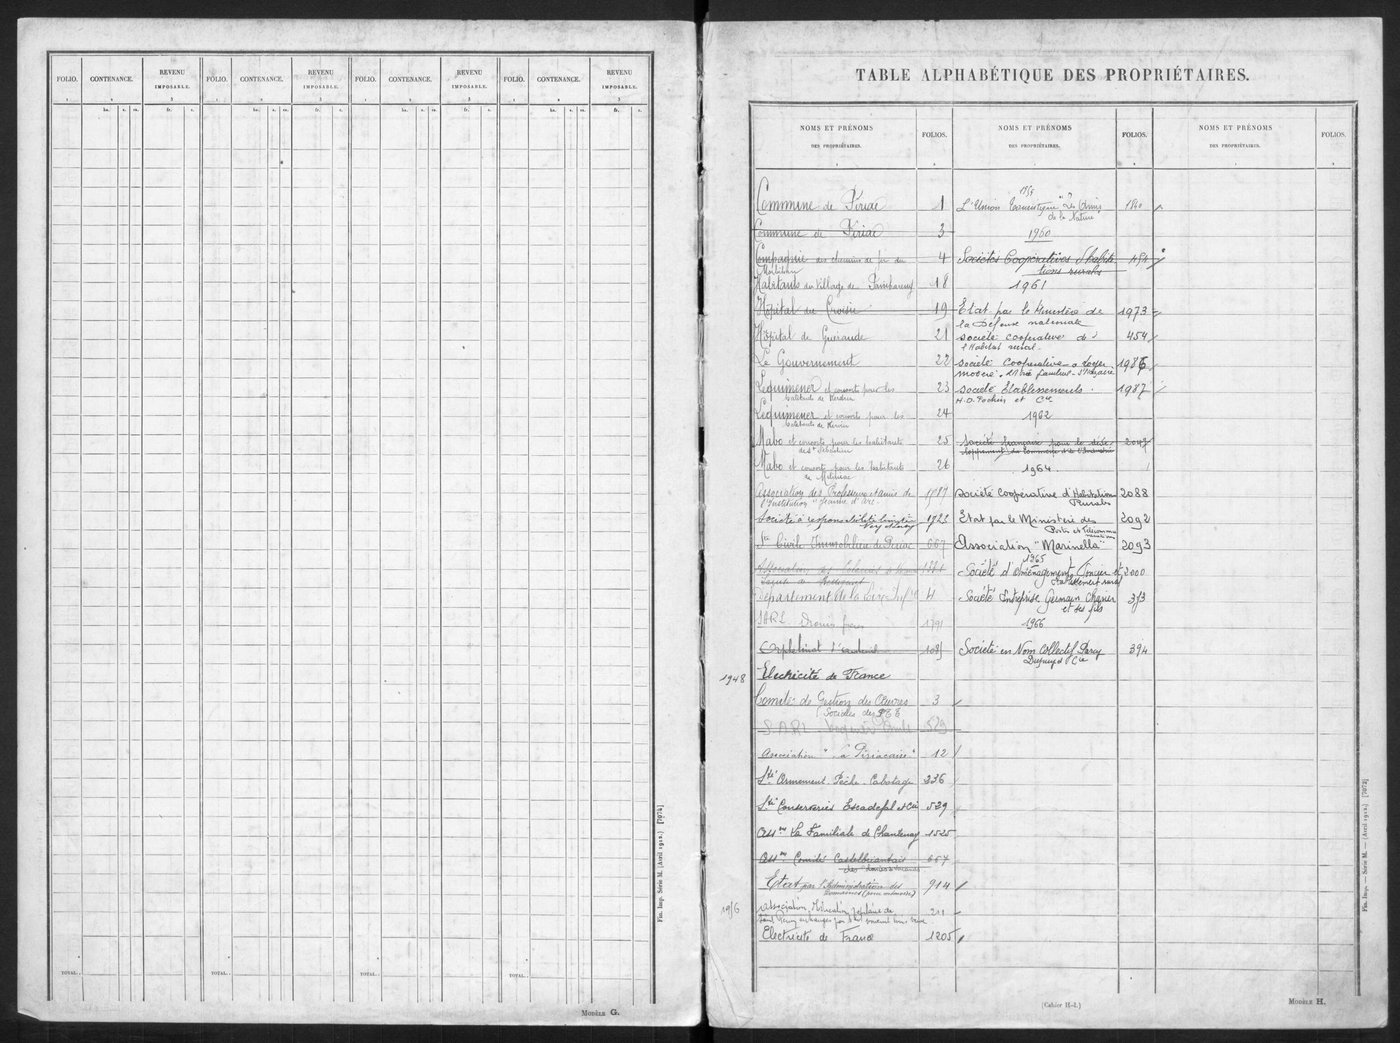 FOLIO. CONTENANCE. REVENU IMPOSABLE. FOLIO. CONTENANCE. REVENU IMPOSABLE. FOLIO. CONTENANCE. REVENU IMPOSABLE. FOLIO. CONTENANCE. REVENU IMPOSABLE.
1 2 3 1 2 3 1 2 3 1 2 3
ha. a. ca. fr. c. ha. a. ca. fr. c. ha. a. ca. fr. c. ha. a. ca. fr. c.
TOTAL. TOTAL. TOTAL. TOTAL.
Fin. Imp. Série M. (Avril 1912.) [7074]
MODÈLE G.
TABLE ALPHABÉTIQUE DES PROPRIÉTAIRES.
NOMS ET PRÉNOMS DES PROPRIÉTAIRES. FOLIOS. NOMS ET PRÉNOMS DES PROPRIÉTAIRES. FOLIOS. NOMS ET PRÉNOMS DES PROPRIÉTAIRES. FOLIOS.
Commune de Piriac 1
Commune de Piriac 3
Compagnie des chemins de fer du Morbihan 4
Habitants du Village de 18
Hôpital du Croisic 19
Hôpital de Guérande 21
Le Gouvernement 22
Lequimener et consorts pour les habitants de 23
Lequimener et consorts pour les habitants de 24
Mabo et consorts pour les habitants de St Sébastien 25
Mabo et consorts pour les habitants de 26
Association des Professeurs et amis de l'Institution "Jeanne d'Arc"
Société à responsabilité limitée 1723
Sté Civile Immobilière de Piriac 667
Association
Département de la Loire Infre 4
SARL frères 1791
Orphelinat
1948 Electricité de France
Comité de Gestion des Œuvres Sociales des PTT 3
SARL 529
Association "La Piriacaise" 12
Sté Armement Pêche Cabotage 236
Sté Conserveries Escadefal et Cie 529
Asson La Familiale de Chantenay 1525
Asson Comité Castelbriantais 667
Etat par l'Administration des Domaines 914
Association
Electricité de France 1205
L'Union Touristique "Les Amis de la Nature" 1840
1960
Sociétés Coopératives d'habitations rurales 454
1961
Etat par le Ministère de la Défense nationale 1973
Société coopérative de l'Habitat rural 454
Société Coopérative à loyer modéré 1986
Société Etablissements H.D. Pochin et Cie 1987
1962
Société française pour le développement
1964
Société Coopérative d'Habitations Rurales 2088
Etat par le Ministère des Postes et Télécommunications 2092
Association "Marinella" 2093
1965
Société d'Aménagement Foncier et Etablissement rural 2000
Société Entreprise Germain et ses fils 313
1966
Société en Nom Collectif et Cie 394
(Cahier H-1.)
MODÈLE H.
Fin. Imp. — Série M. — (Avril 1912.) [7073]